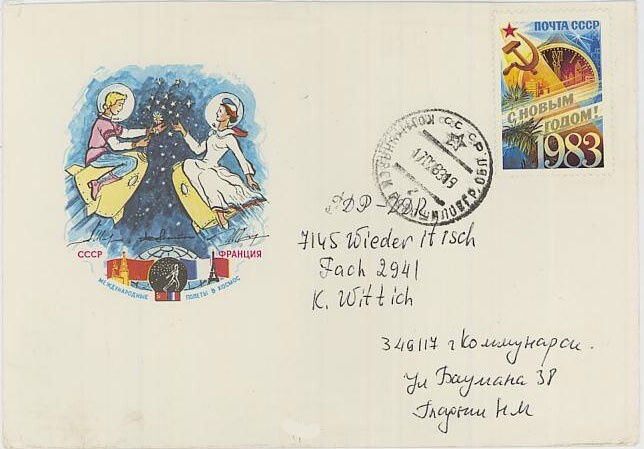 ПОЧТА СССР
С НОВЫМ
ГОДОМ!
1983
СССР
ФРАНЦИЯ
МЕЖДУНАРОДНЫЕ ПОЛЕТЫ В КОСМОС
ГДР-DDR
7145 Wiederitzsch
Fach 2941
K. Wittich
349117 г Коммунарск.
Ул Баумана 38